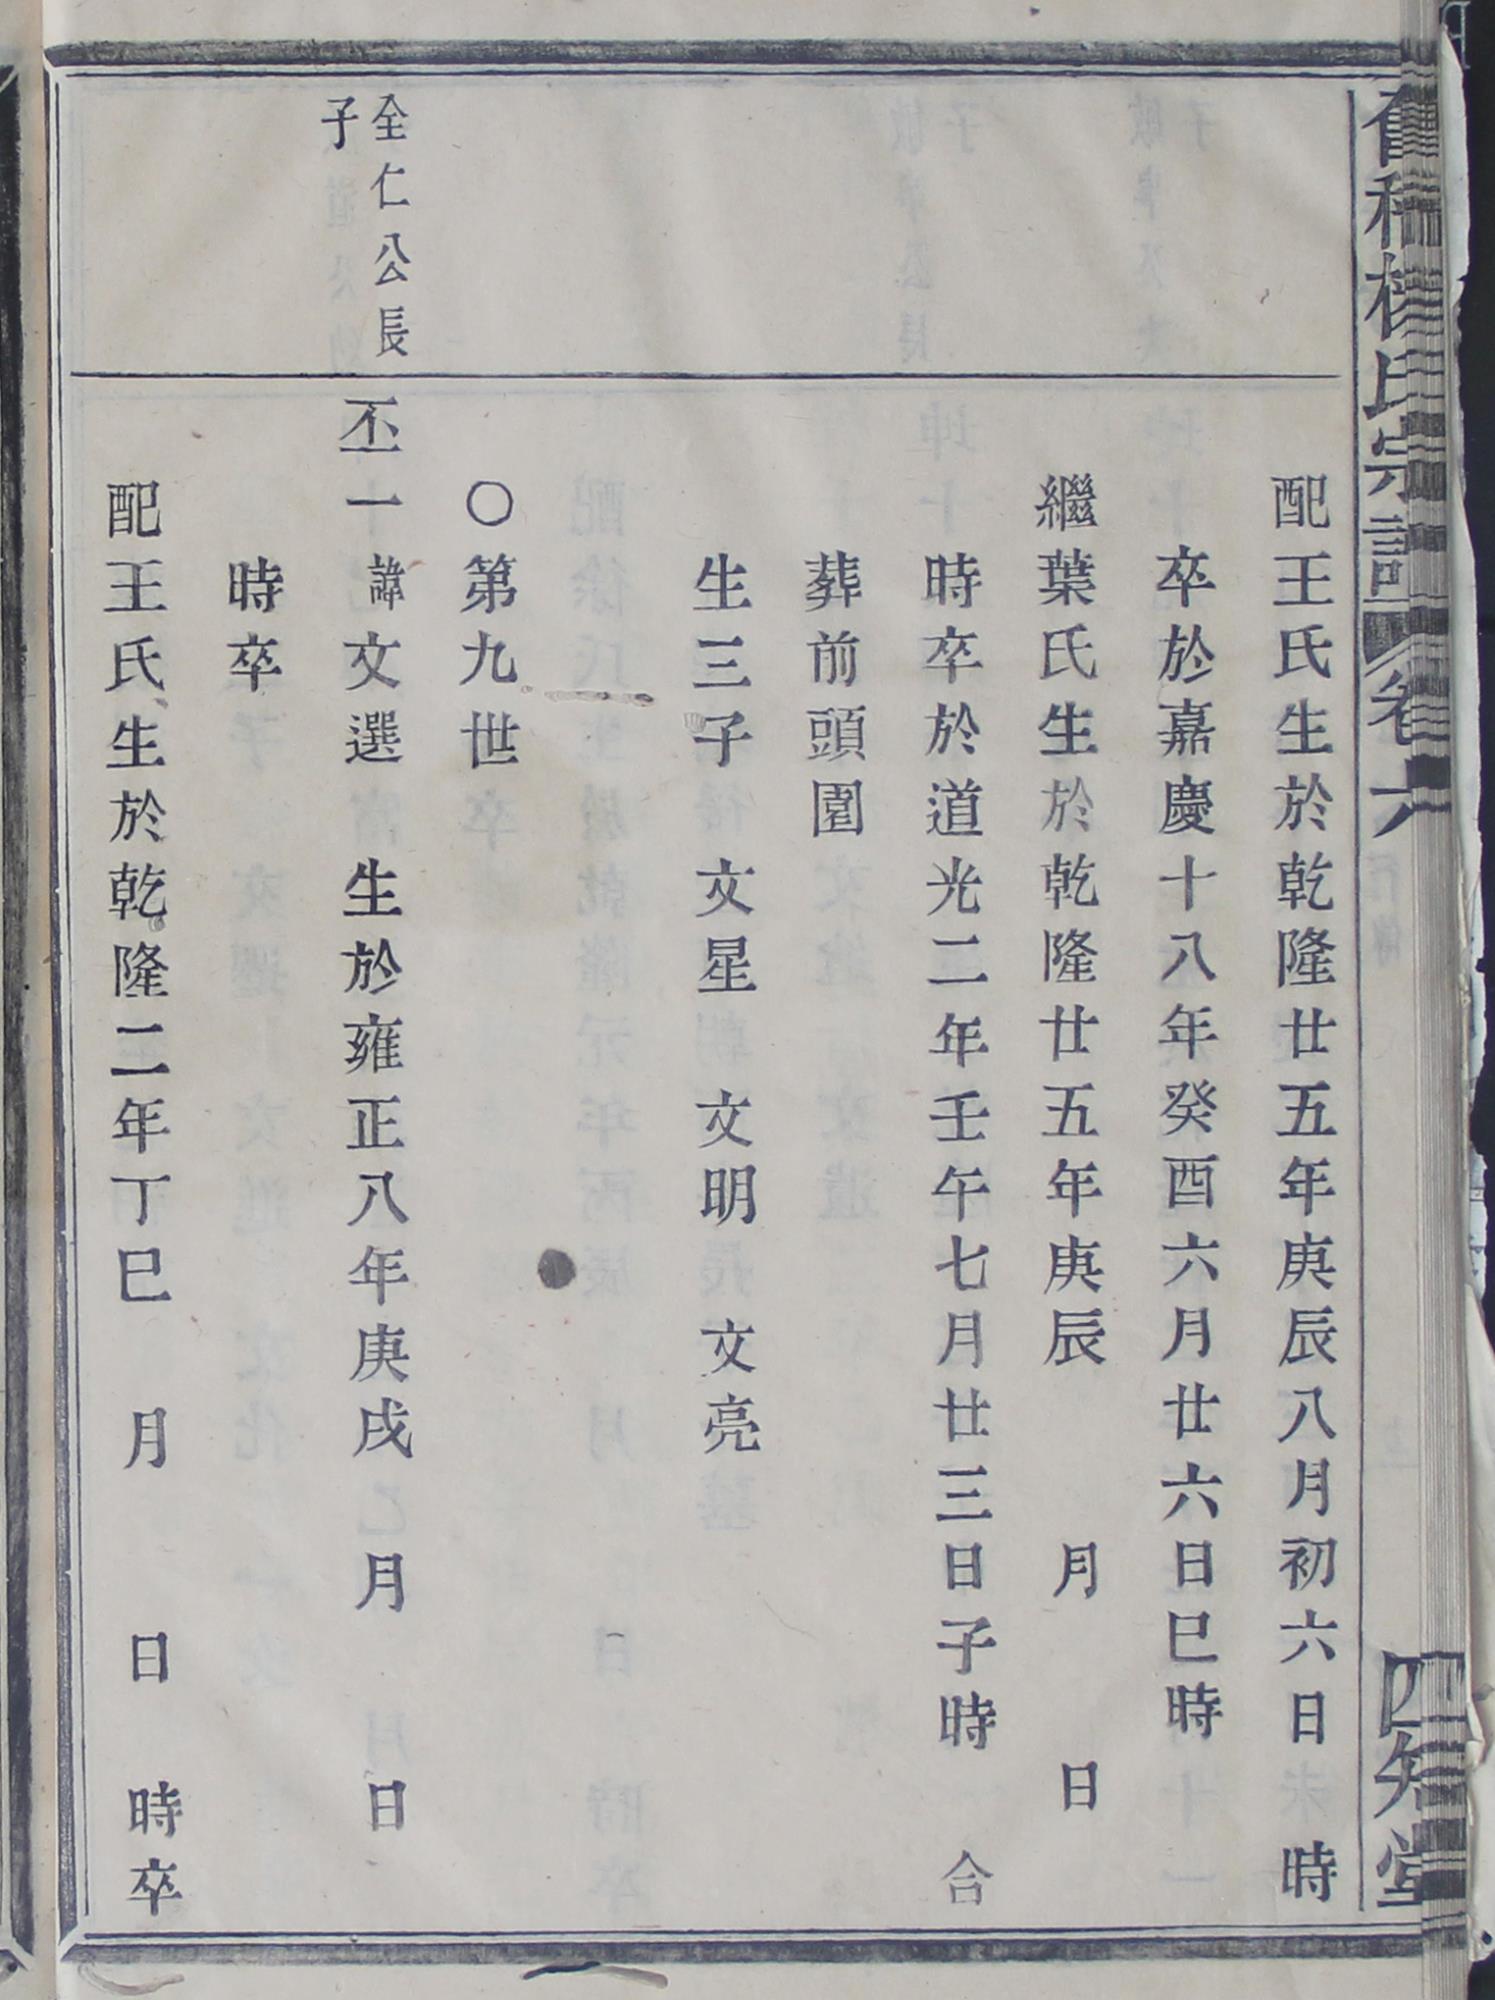 氏宗譜 卷六 四知堂
配王氏生於乾隆廿五年庚辰八月初六日 時
卒於嘉慶十八年癸酉六月廿六日巳時
繼葉氏生於乾隆廿五年庚辰 月 日
時卒於道光二年壬午七月廿三日子時 合
葬前頭園
生三子 文星 文明 文亮
○第九世
全仁公長
子
丕一 諱文選 生於雍正八年庚戌 月 日
時卒
配王氏生於乾隆二年丁巳 月 日 時卒